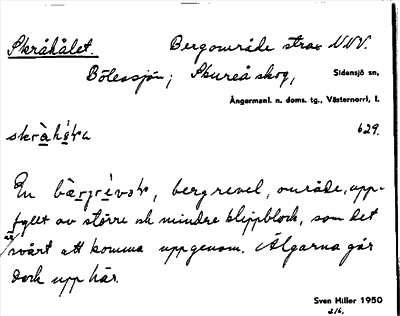 Skråhålet. Bergområde strax NNV.
Bölessjön; Skureå skog, Sidensjö sn,
Ångermanl. n. doms. tg., Västernorrl, l.
629.
En bærgrévəl, bergrevel, område, upp-
fyllt av större och mindre klippblock, som det
är svårt att komma uppgenom. Älgarna går
dock upp här.
Sven Hiller 1950
2/6.